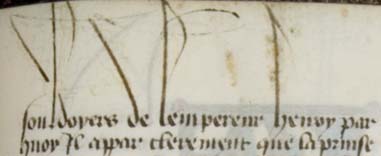 soudoyers de lempereur henry par
quoy Il appar clerement que la prinse